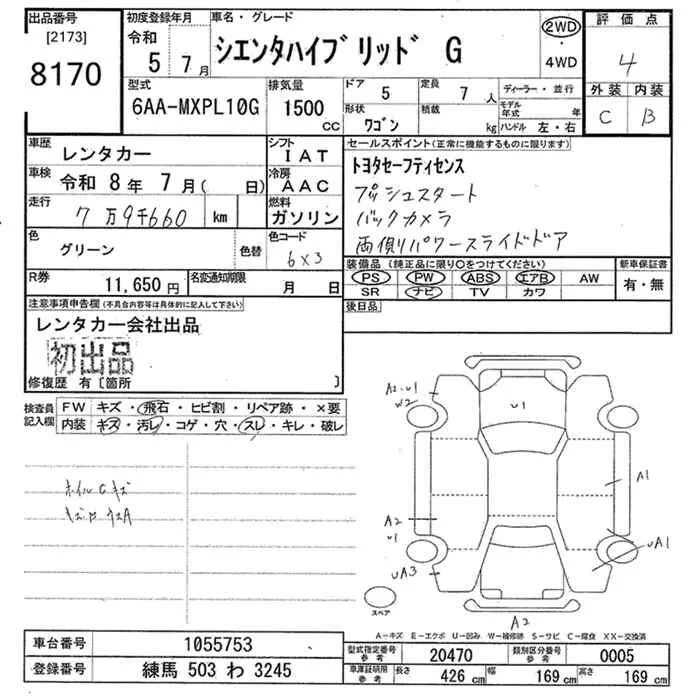 出品番号 初度登録年月 車名・グレード 評価点
[2173] 令和 5年 7月 シエンタハイブリッド G 2WD・4WD 4
8170
型式 排気量 ドア 5 定員 7人 ディーラー・並行 外装 内装
6AA-MXPL10G 1500cc 形状 ワゴン 積載 kg モデル年式 年 ハンドル 左・右 C B
車歴 レンタカー シフト IAT セールスポイント(正常に機能するものに限ります)
車検 令和 8年 7月( 日) 冷房 AAC トヨタセーフティセンス
走行 7万9千660 km 燃料 ガソリン プッシュスタート
バックカメラ
色 グリーン 色替 色コード 6X3 両側パワースライドドア
R券 11,650円 名変通知期限 月 日 装備品(純正品に限り〇をつけてください) 新車保証書
PS PW ABS エアB AW 有・無
SR ナビ TV カワ
注意事項申告欄(不具合内容等は具体的に記入して下さい) 後日品
レンタカー会社出品
初出品
修復歴 有〔箇所 〕
検査員記入欄 FW キズ・飛石・ヒビ割・リペア跡・×要
内装 キズ・汚レ・コゲ・穴・スレ・キレ・破レ
ホイルCキズ
A2・U1
W2
U1
A1
A2
U1
UA3
UA1
A2
スペア
A-キズ E-エクボ U-凹み W-補修跡 S-サビ C-腐食 XX-交換済
車台番号 1055753 型式指定番号 参考 20470 類別区分番号 参考 0005
登録番号 練馬 503 わ 3245 車庫証明用 参考 長さ 426 cm 幅 169 cm 高さ 169 cm